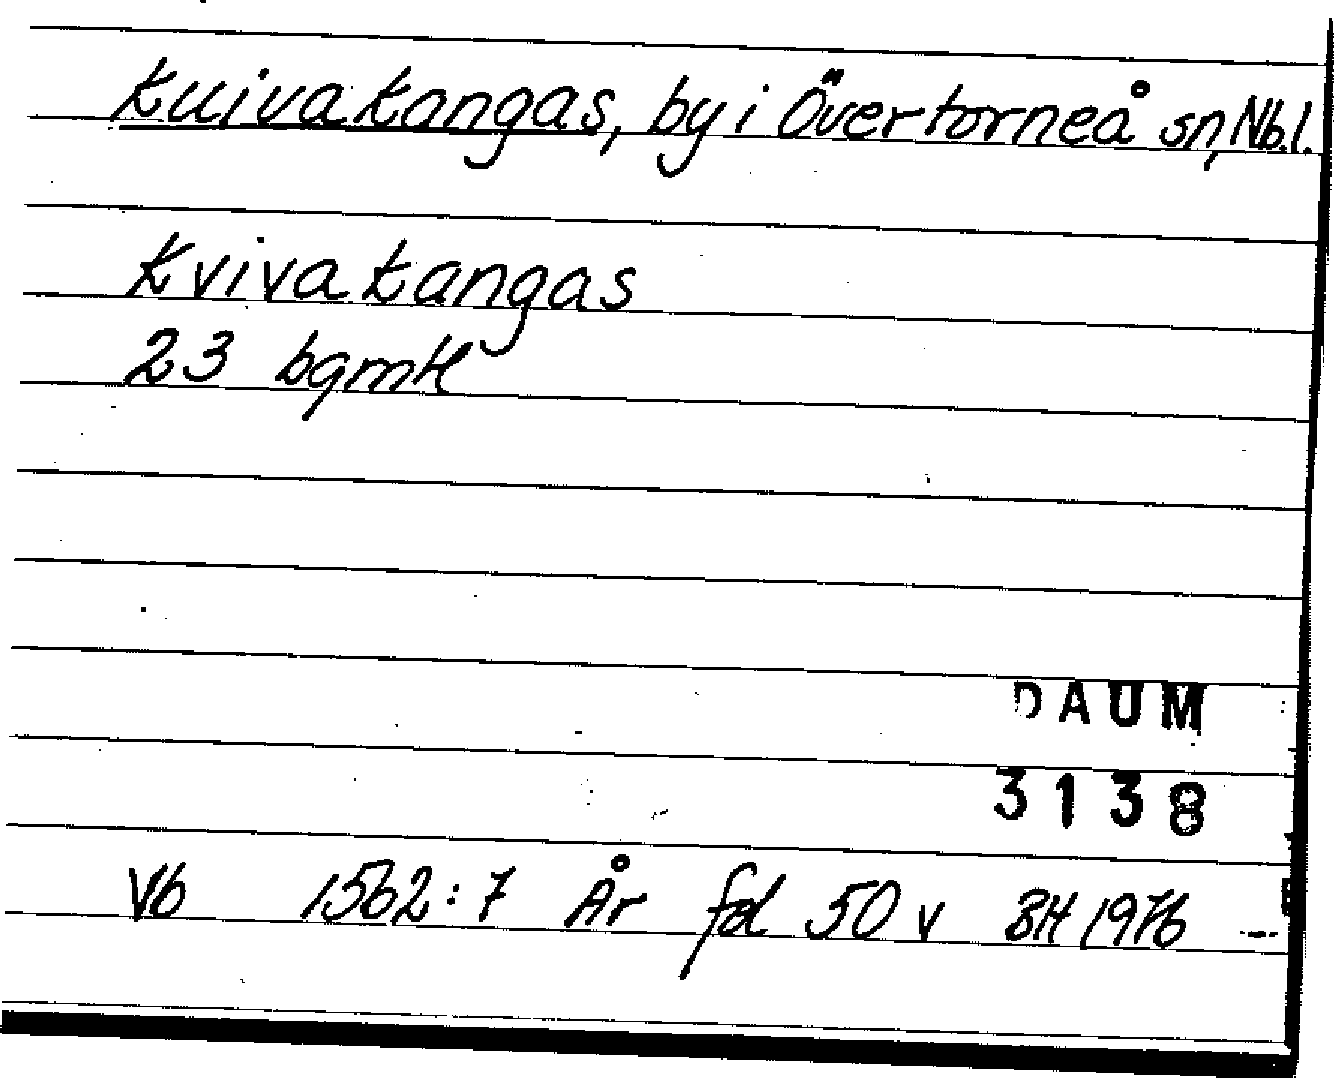 Kuivakangas, by i Övertorneå sn, Nb.l.
Kvivakangas
23 bgmH
DAUM
3138
Vb 1562:7 År fol 50 v BH 1976